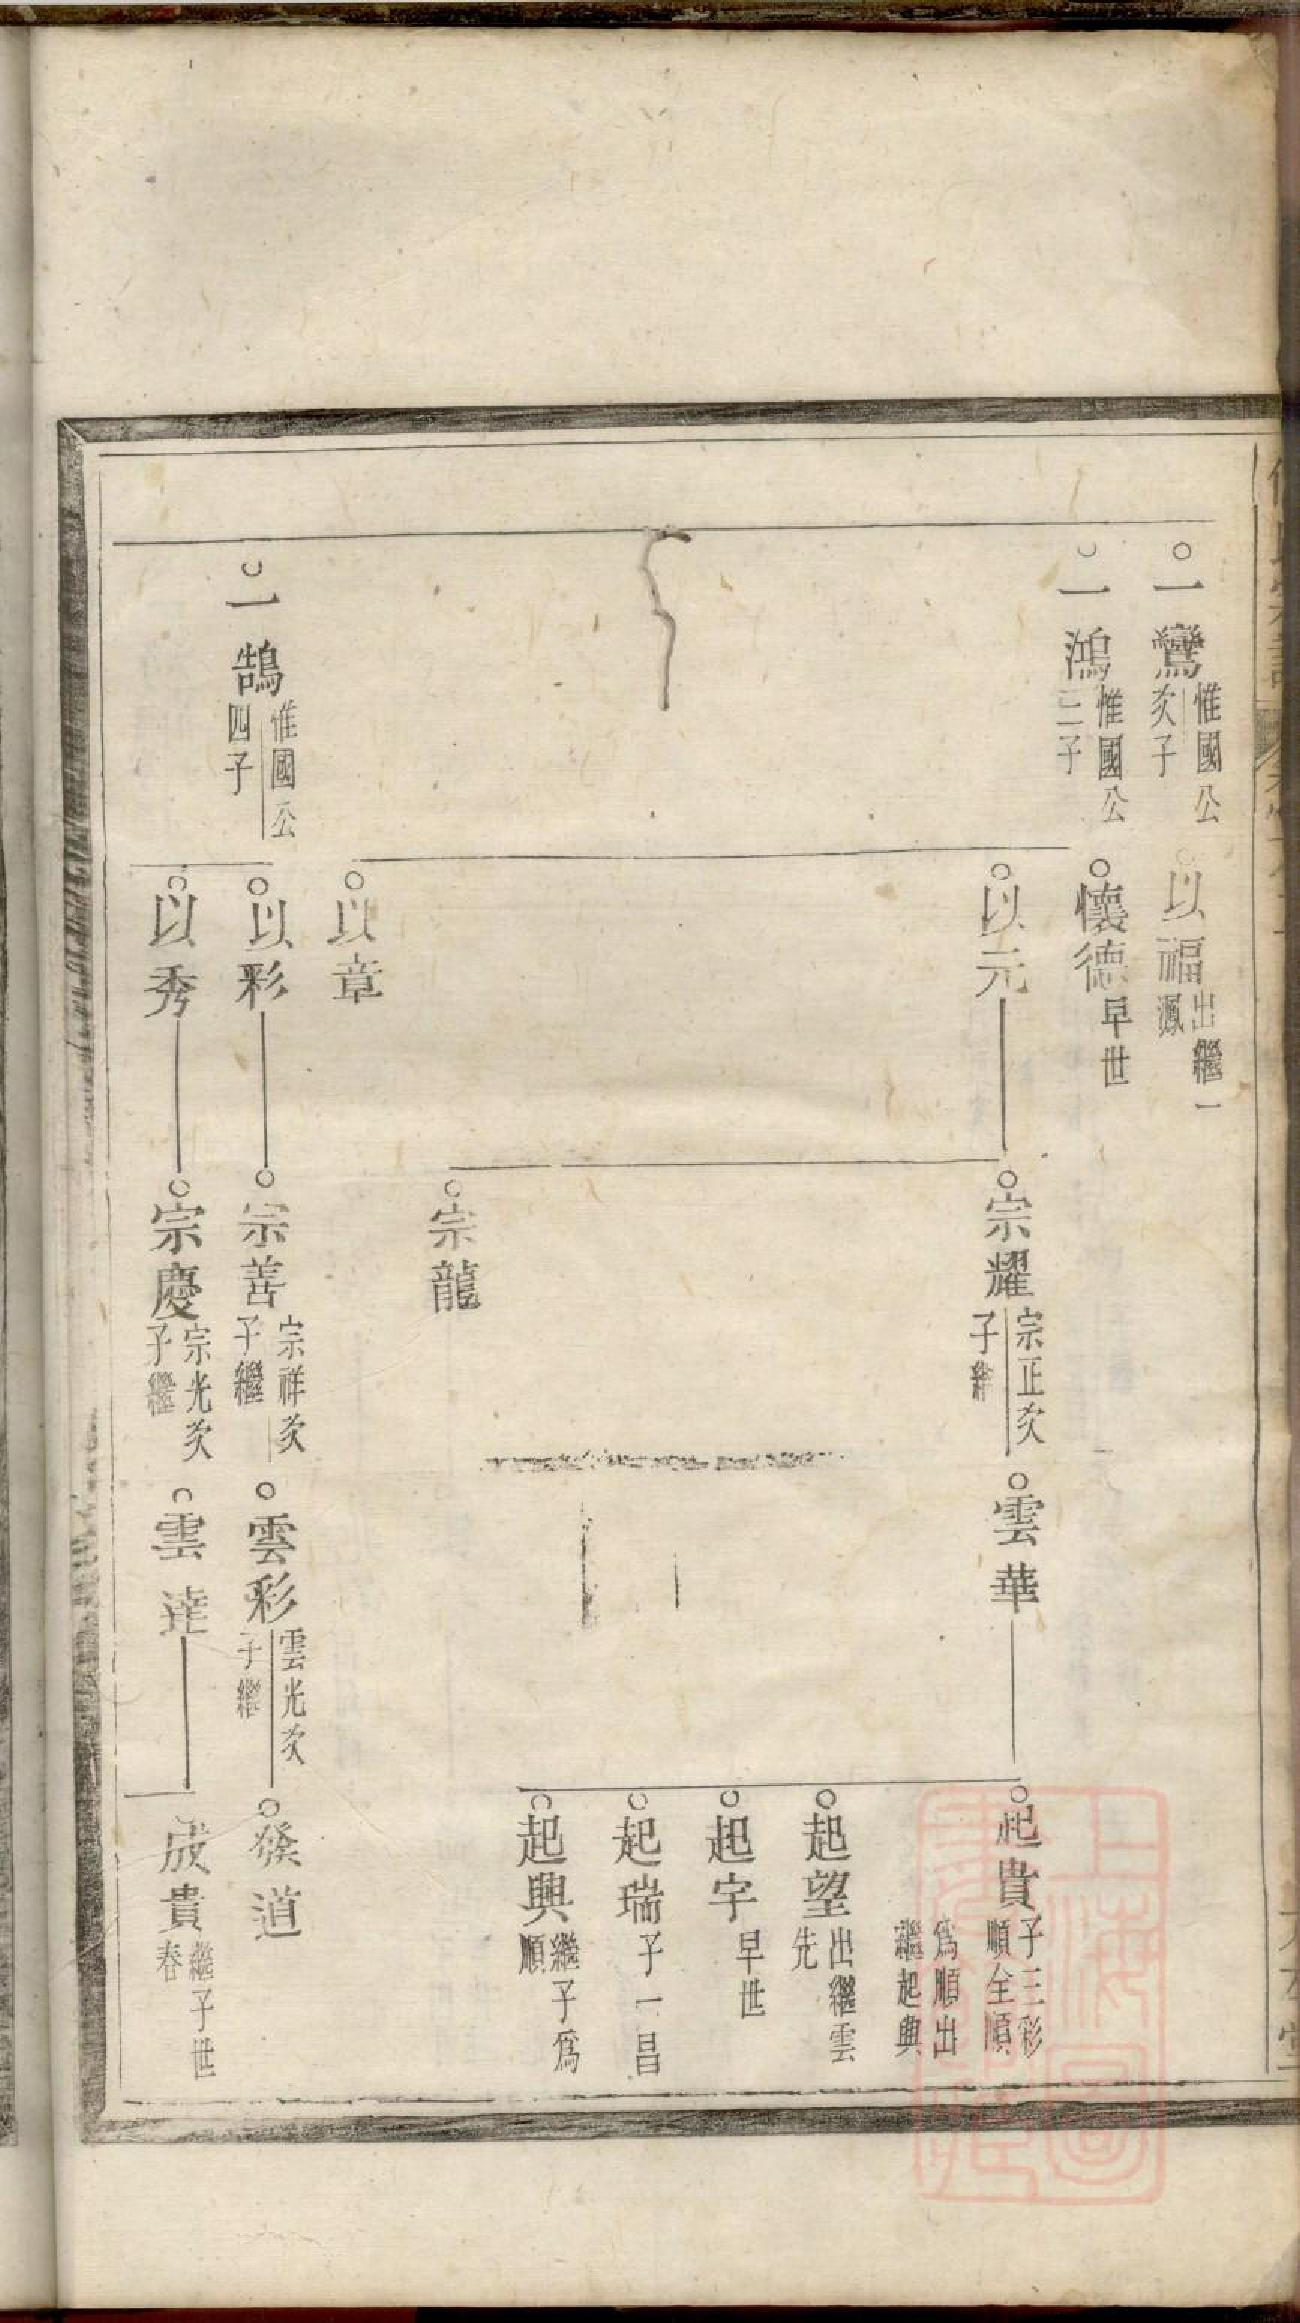 一鸞 惟國公
次子
以福 出繼一
鳳
一鴻 惟國公
三子
懷德 早世
以元
宗耀 宗正次
子繼
雲華
起貴 子三彩
順全順
為順出
繼起興
起望 出繼雲
先
起宇 早世
起瑞 子一昌
起興 繼子為
順
宗龍
以章
一鵠 惟國公
四子
以彩
宗善 宗祥次
子繼
雲彩 雲光次
子繼
發道
以秀
宗慶 宗光次
子繼
雲達
成貴 繼子世
春